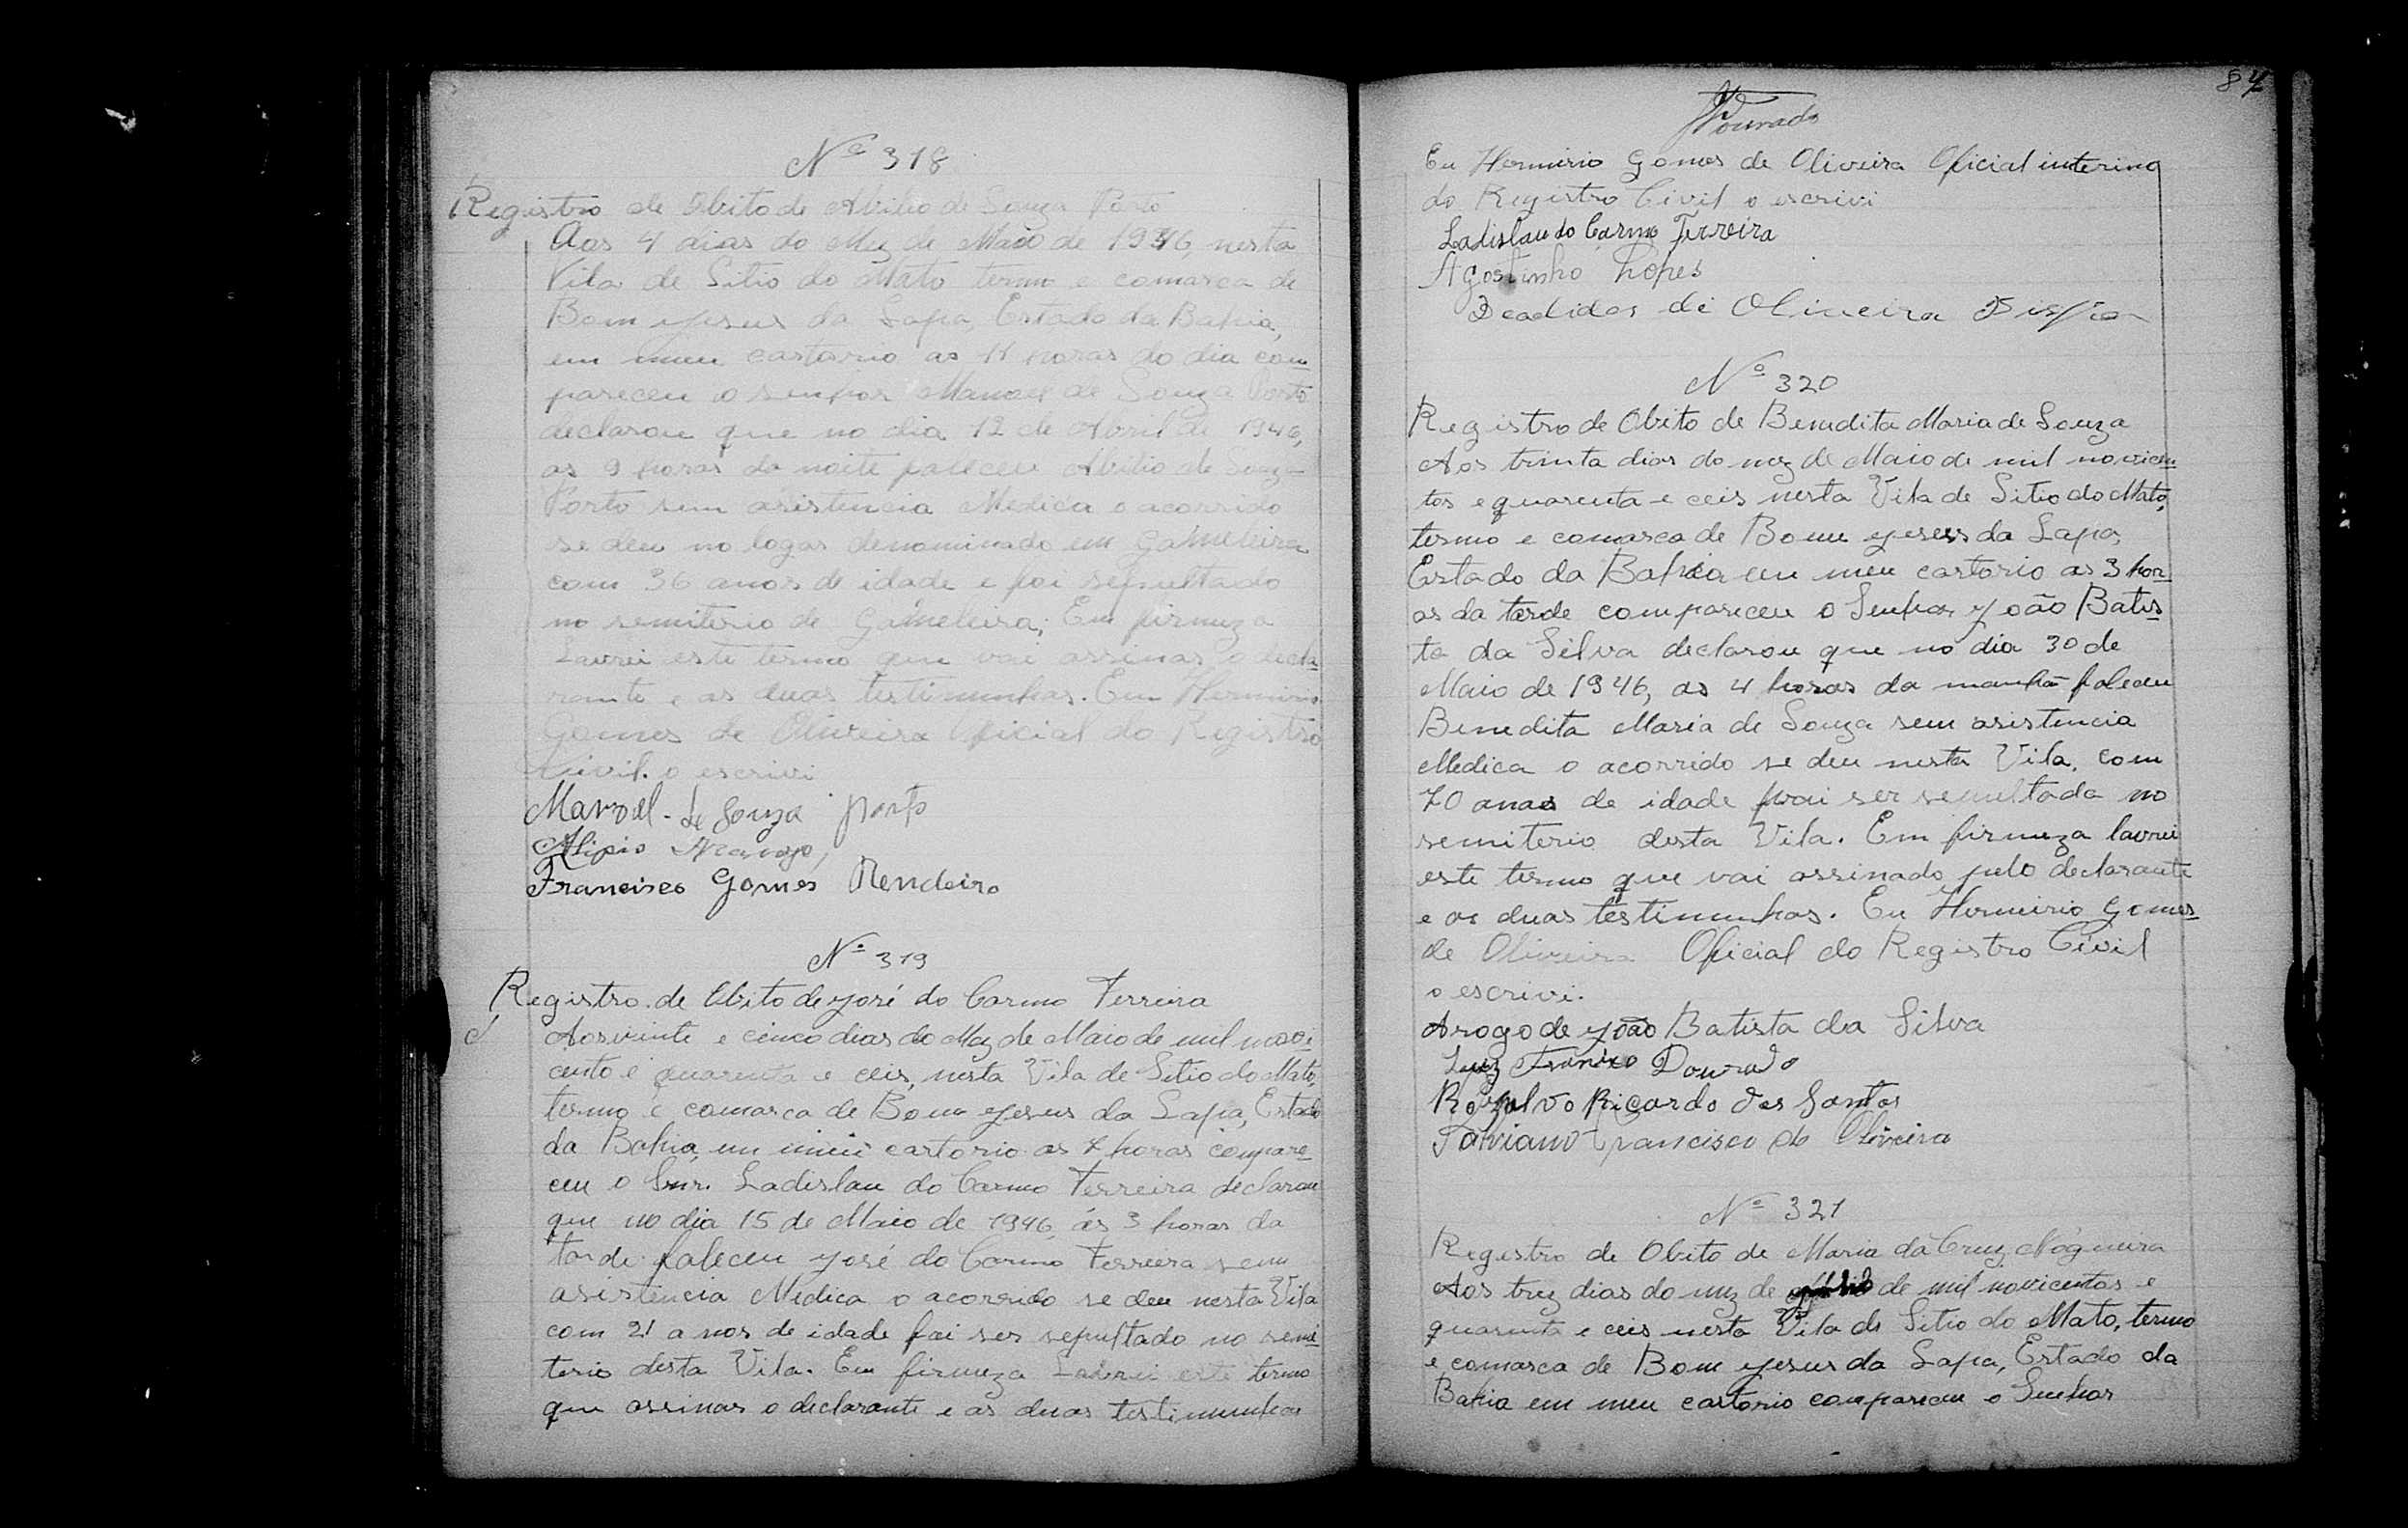 Nº 318
Registro de Obito de Abilio de Souza Porto
Aos 4 dias do Mez de Maio de 1946, nesta
Vila de Sitio do Mato termo e comarca de
Bom yesus da Lapa, Estado da Bahia,
em meu cartorio as 11 horas do dia com
pareceu o senhor Manoel de Souza Porto
declarou que no dia 12 de Abril de 1946,
as 9 horas da noite faleceu Abilio de Souza
Porto sem asistencia Medica o acorrido
se deu no logar denominado em Gameleira
com 36 anos de idade e foi sepultado
no semiterio de Gameleira; Em firmeza
Lavrei este termo que vai assinar o decla-
rante e as duas testimunhas. Eu Hermirio
Gomes de Oliveira Oficial do Registro
Civil. o escrivi
Manoel. de Souza porto
Alipio Araujo,
Francisco Gomes Rendeiro
Nº 319
Registro de Obito de yosé do Carmo Ferreira
Aos vinte e cinco dias do Mez de Maio de mil novi
cento e quarenta e ceis, nesta Vila de Sitio do Mato,
termo e comarca de Bom yesus da Lapa, Estado
da Bahia, em meu cartorio as 4 horas compare-
ceu o Snr. Ladislau do Carmo Ferreira declarou
que no dia 15 de Maio de 1946, ás 3 horas da
tarde faleceu yosé do Carmo Ferreira sem
asistencia Medica o acorrido se deu nesta Vila
com 21 anos de idade foi ser sepultado no semi-
terio desta Vila. Em firmeza Lavrei este termo
que assinar o declarante e as duas testimunhas
84
Dourado
Eu Hermirio Gomes de Oliveira Oficial interino
do Registro Civil o escrivi
Ladislau do Carmo Ferreira
Agostinho Lopes
Deadidos de Oliveira
Nº 320
Registro de Obito de Benedita Maria de Souza
Aos trinta dias do mez de Maio de mil novicen
tos e quarenta e ceis nesta Vila de Sitio do Mato,
termo e comarca de Bom yesus da Lapa,
Estado da Bahia em meu cartorio as 3 hor-
as da tarde compareceu o Senhor yoão Batis-
ta da Silva declarou que no dia 30 de
Maio de 1946, as 4 horas da manhã faleceu
Benedita Maria de Souza sem asistencia
Medica o acorrido se deu nesta Vila, com
70 anos de idade foi ser sepultada no
semiterio desta Vila. Em firmeza lavrei
este termo que vai assinado pelo declarante
e as duas testimunhas. Eu Hermirio Gomes
de Oliveira Oficial do Registro Civil
o escrivi.
Arogo de yoão Batista da Silva
Luiz Francisco Dourado
Rozalvo Ricardo dos Santos
Salviano Francisco de Oliveira
Nº 321
Registro de Obito de Maria da Cruz Nogueira
Aos trez dias do mez de de mil novicentos e
quarenta e ceis nesta Vila de Sitio do Mato, termo
e comarca de Bom yesus da Lapa, Estado da
Bahia em meu cartorio compareceu o Senhor